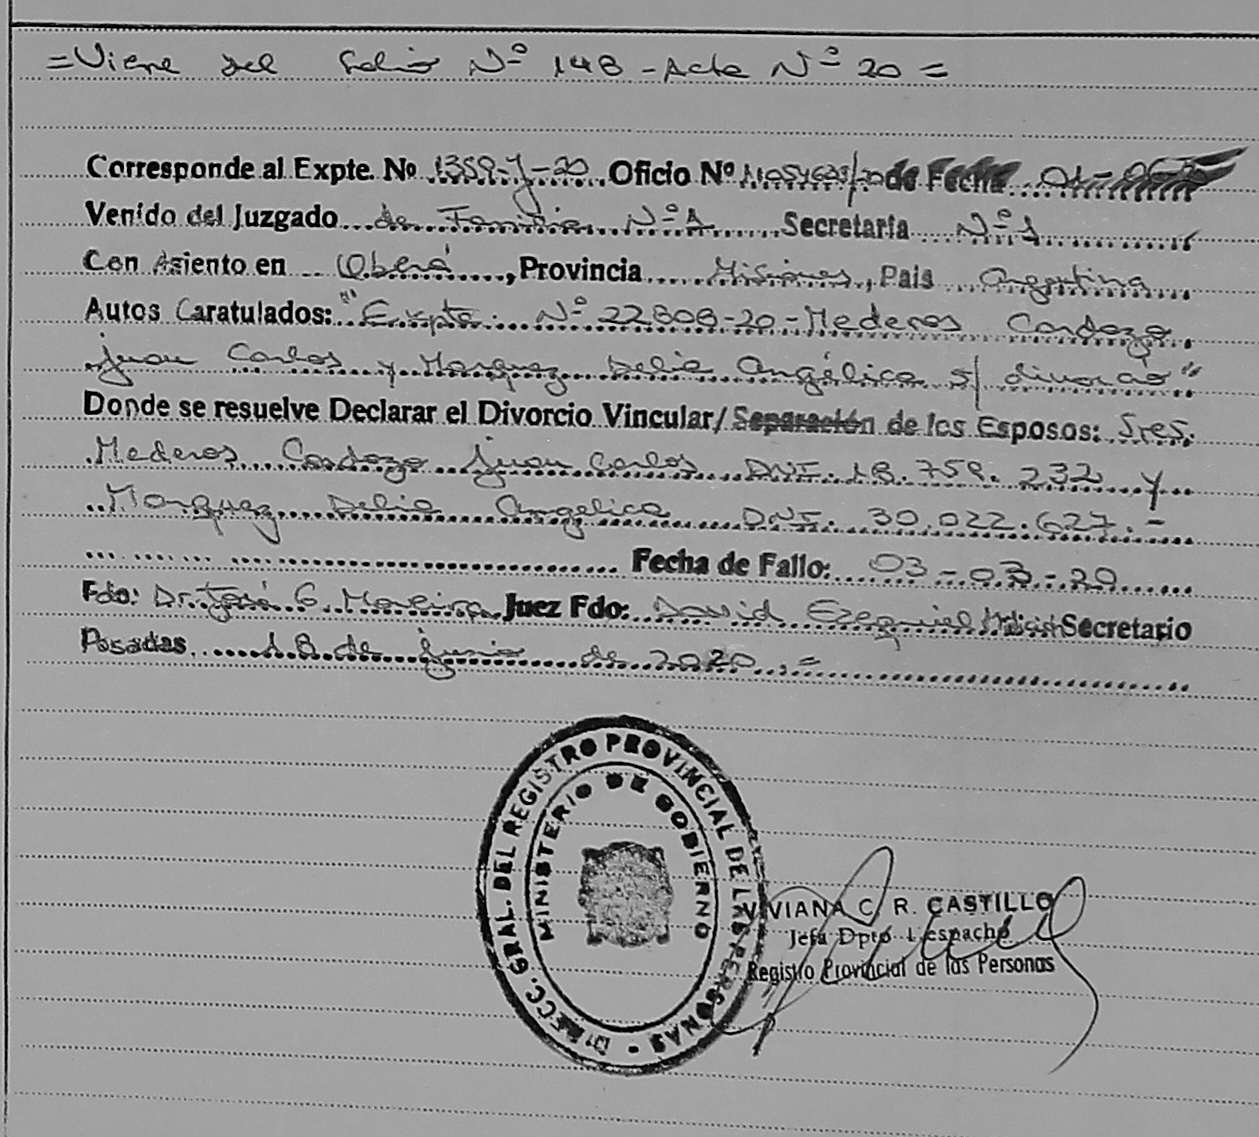 =Viene del Folio Nº 148 - Acta Nº 20 =
Corresponde al Expte. No 1359-J-20 Oficio Nº de Fecha 01-
Venido del Juzgado de Familia Nº 1 Secretaría Nº 1
Con Asiento en Oberá, Provincia Misiones, Pais Argentina
Autos Caratulados: "Expte. Nº 22808-20-Mederos Cardozo
Juan Carlos y Marquez Delia Angélica s/ divorcio"
Donde se resuelve Declarar el Divorcio Vincular/Separación de los Esposos: Sres.
Mederos Cardozo Juan Carlos DNI. 18.759.232 y
Marquez Delia Angelica DNI. 30.022.627.-
Fecha de Fallo: 03-03-20
Fdo: Dr. José G. Moreira Juez Fdo: David Ezequiel Secretario
Posadas 18 de junio de 2020.=
DIRECC. GRAL. DEL REGISTRO PROVINCIAL DE LAS PERSONAS -
MINISTERIO DE GOBIERNO
VIVIANA C. R. CASTILLO
Jefa Dpto Despacho
Registro Provincial de las Personas